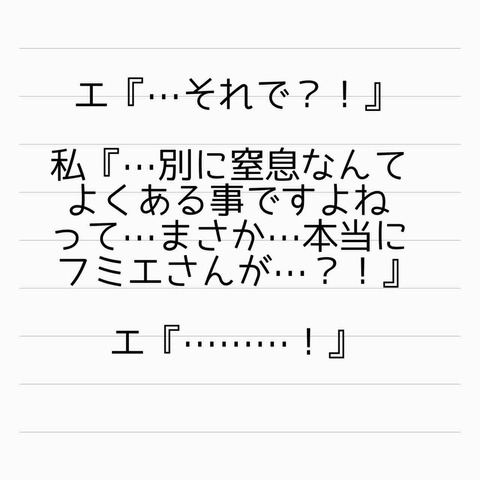 エ『…それで？！』
私『…別に窒息なんて
よくある事ですよね
って…まさか…本当に
フミエさんが…？！』
エ『………！』